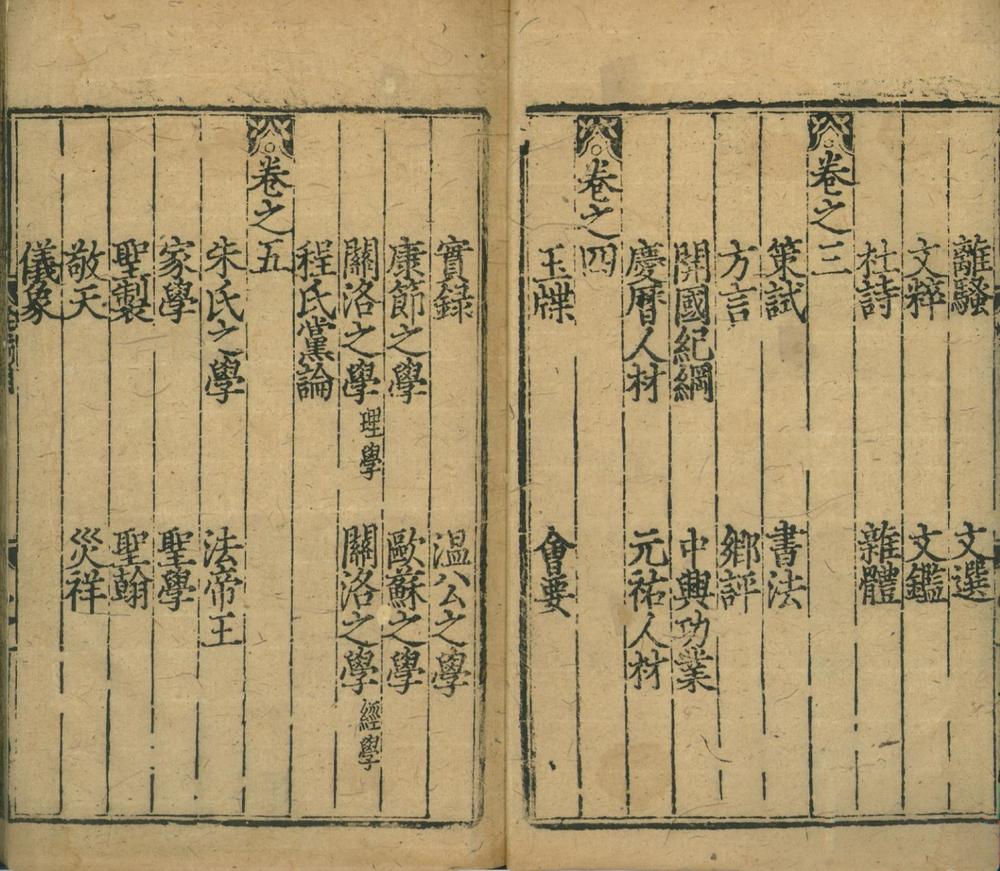 離騷　文選
文粹　文鑑
杜詩　雜體
卷之三
策試　書法
方言　鄉評
開國紀綱　中興功業
慶曆人材　元祐人材
卷之四
玉牒　會要
實録　温公之學
康節之學　歐蘇之學
關洛之學理學　關洛之學經學
程氏黨論
卷之五
朱氏之學　法帝王
家學　聖學
聖製　聖翰
敬天　災祥
儀象